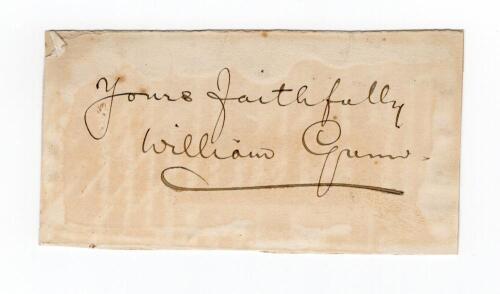 Yours faithfully
William Gunn.